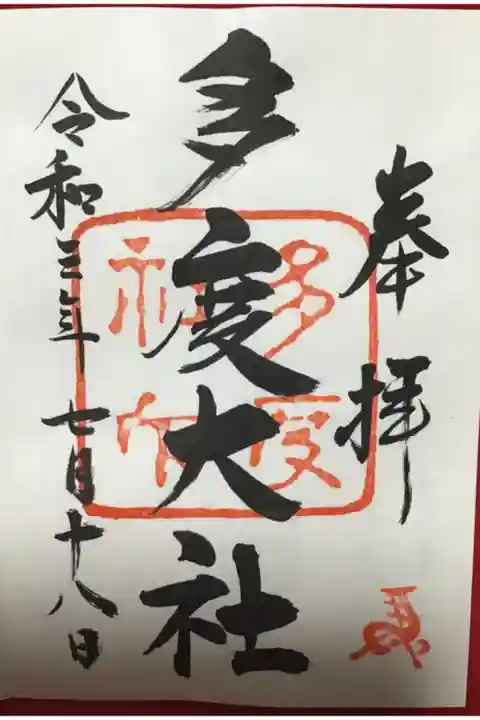 奉拝
多度大社
令和三年七月十八日
多度
神社